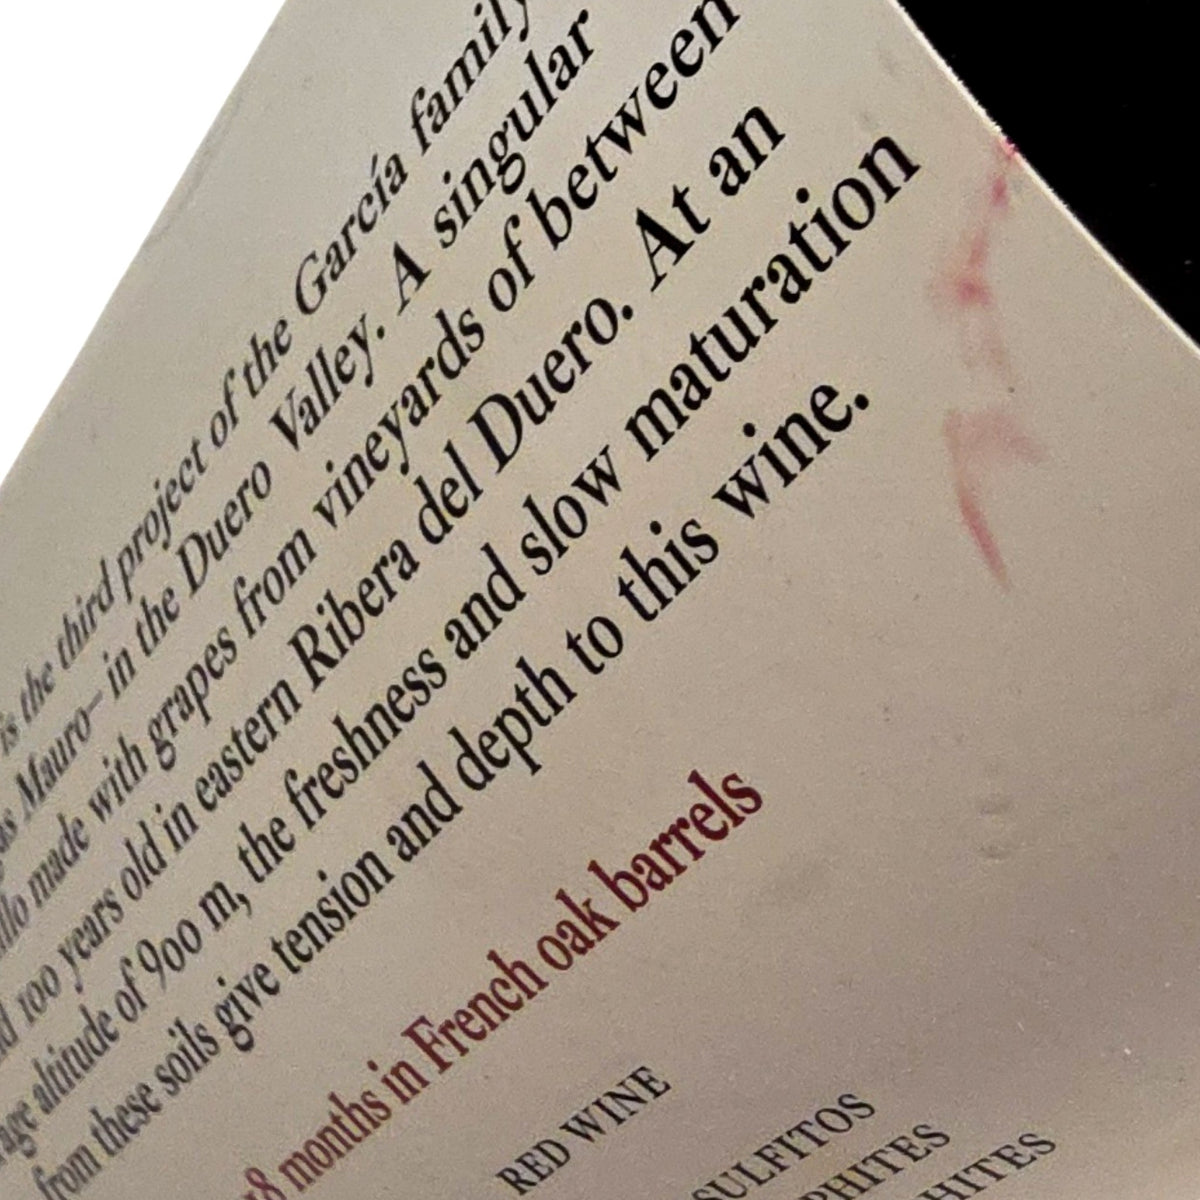 is the third project of the García family
Mauro– in the Duero Valley. A singular
made with grapes from vineyards of between
100 years old in eastern Ribera del Duero. At an
altitude of 900 m, the freshness and slow maturation
from these soils give tension and depth to this wine.
months in French oak barrels
RED WINE
SULFITOS